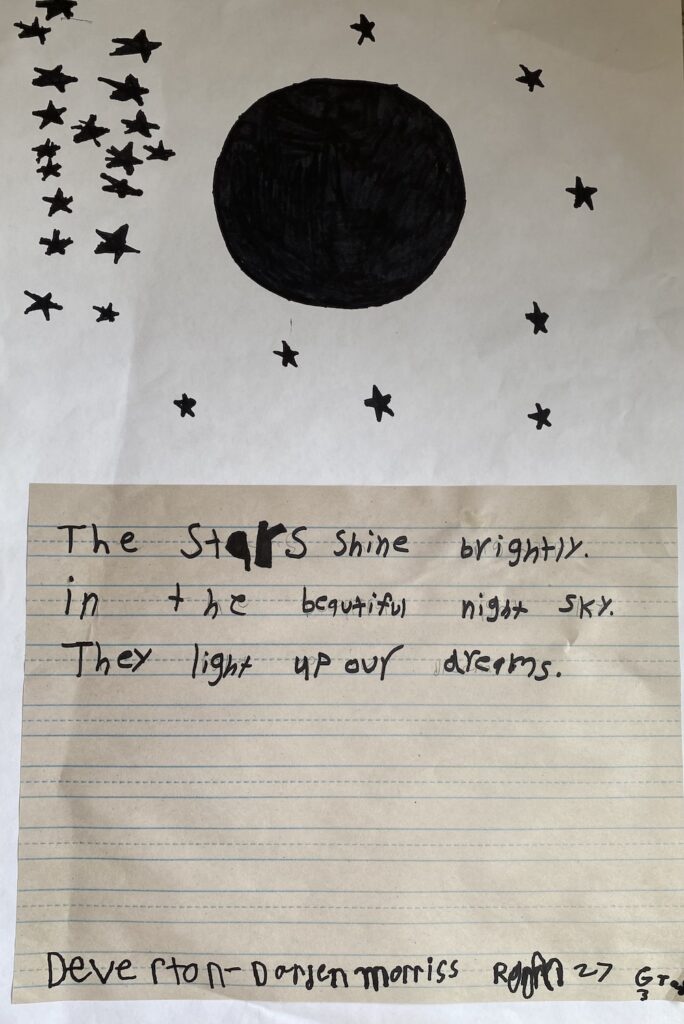 The Stars shine brightly.
in the beautiful night sky.
They light up our dreams.
Deverton- Dorsen morriss 27
3